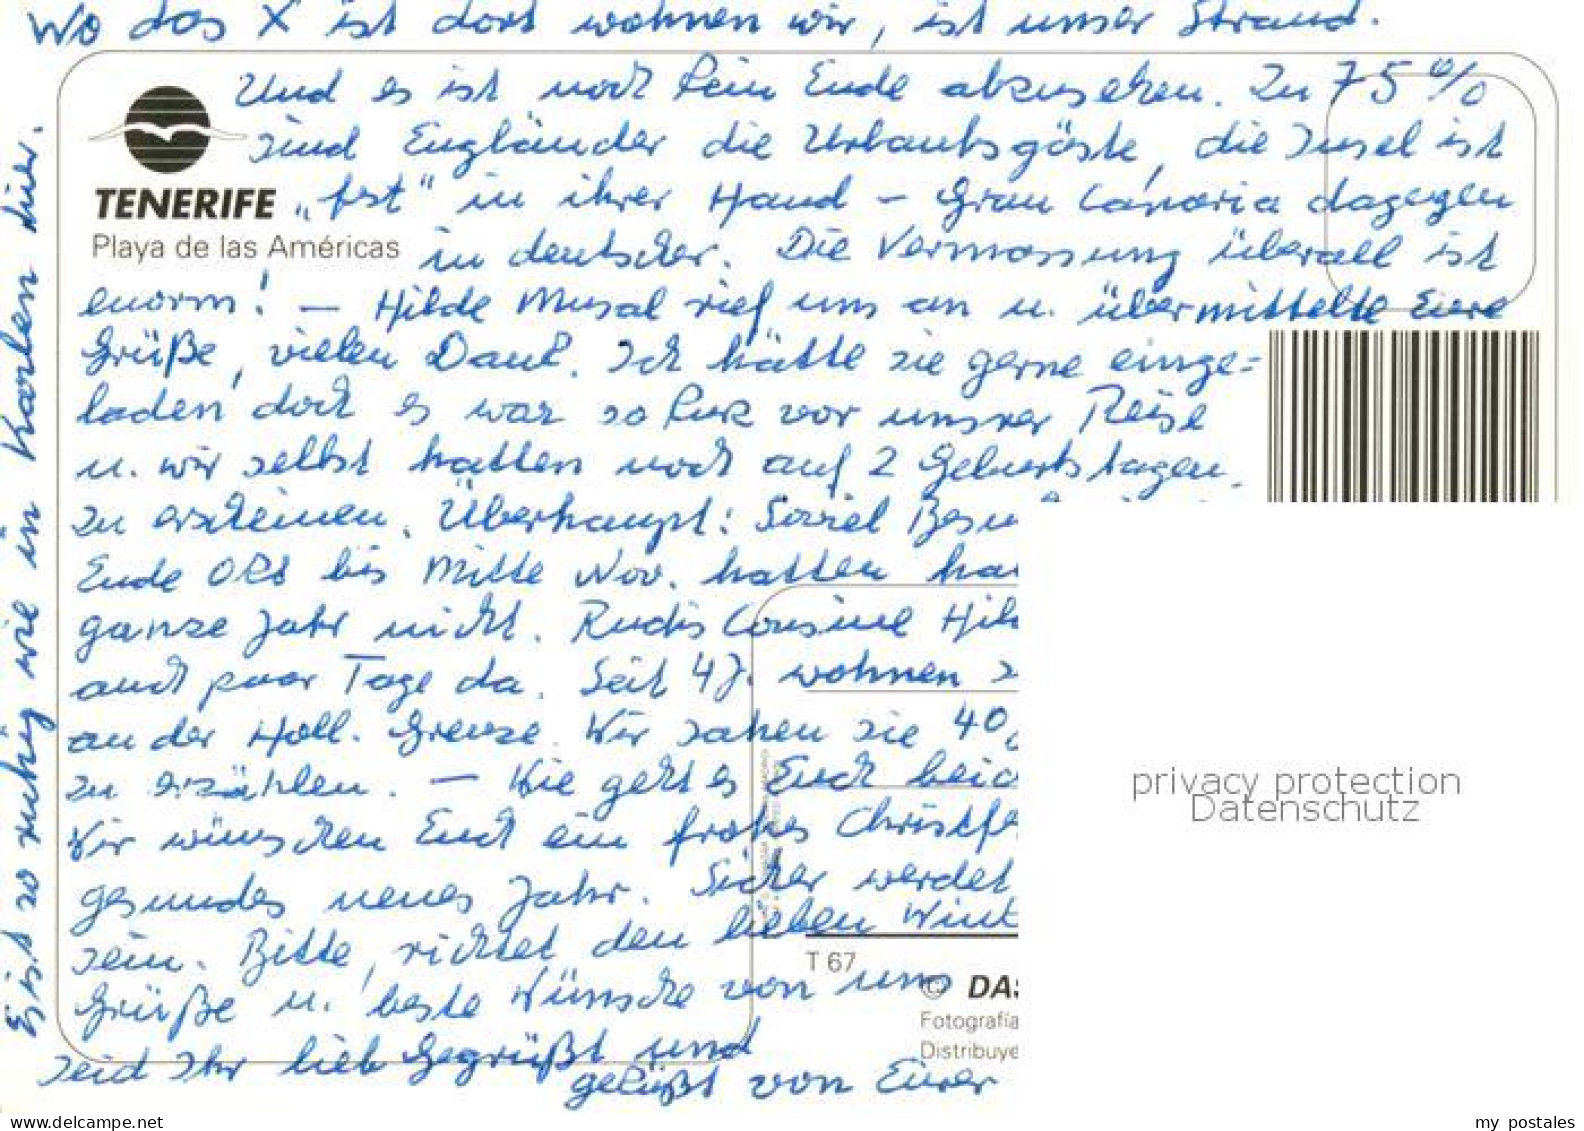 Wo das X ist dort wohnen wir, ist unser Strand.
Und es ist noch kein Ende abzusehen. Zu 75%
sind Engländer die Urlaubsgäste, die Insel ist
TENERIFE „fest" in ihrer Hand – Gran Canaria dagegen
Playa de las Américas in deutscher. Die Vermassung überall ist
enorm! – Hilde Musal rief uns an u. übermittelte Eure
Grüße, vielen Dank. Ich hätte sie gerne einge=
laden doch es war so kurz vor unsrer Reise
u. wir selbst hatten noch auf 2 Geburtstagen
zu erscheinen. Überhaupt: Soviel Besu
Ende Okt bis Mitte Nov. hatten
ganze Jahr nicht. Rudis Cousine Hil
auch paar Tage da. Seit 4 J. wohnen s
an der Holl. Grenze. Wir sahen sie 40
zu erzählen. – Wie geht es Euch beid
Wir wünschen Euch ein frohes Christfe
gesundes neues Jahr. Sicher werdet
sein. Bitte, richtet den lieben Wint
Grüße u. beste Wünsche von uns
Seid Ihr lieb gegrüßt und
geküßt von Eurer
Es ist so ruhig wie in Karben hier.
T 67
© DAS
Fotografía
Distribuye
privacy protection
Datenschutz
my postales